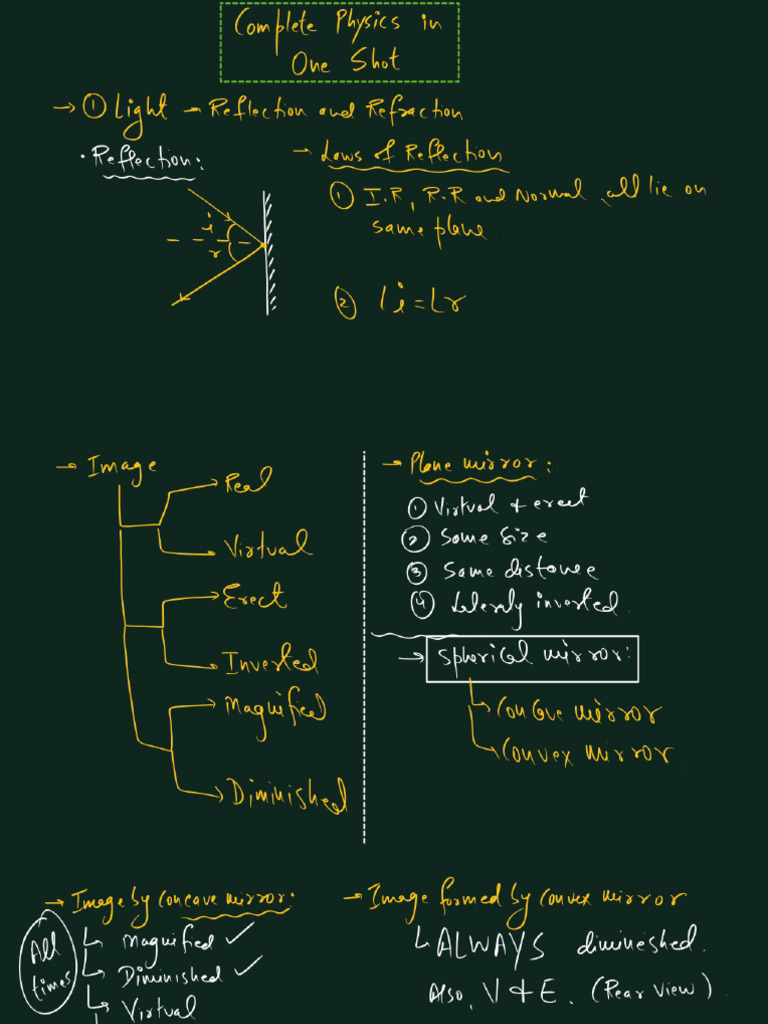 Complete Physics in
One Shot
→ ① Light → Reflection and Refraction
• Reflection:
→ Laws of Reflection
① I.R, R.R and Normal all lie on
same plane
i
r
② ∠i = ∠r
→ Image
Real
Virtual
Erect
Inverted
Magnified
Diminished
→ Plane mirror:
① Virtual & erect
② Same size
③ Same distance
④ Laterally inverted.
→ Spherical mirror:
Concave mirror
Convex mirror
→ Image by concave mirror.
All times
Magnified ✓
Diminished ✓
Virtual
→ Image formed by convex mirror
ALWAYS diminished.
Also, V & E. (Rear View).